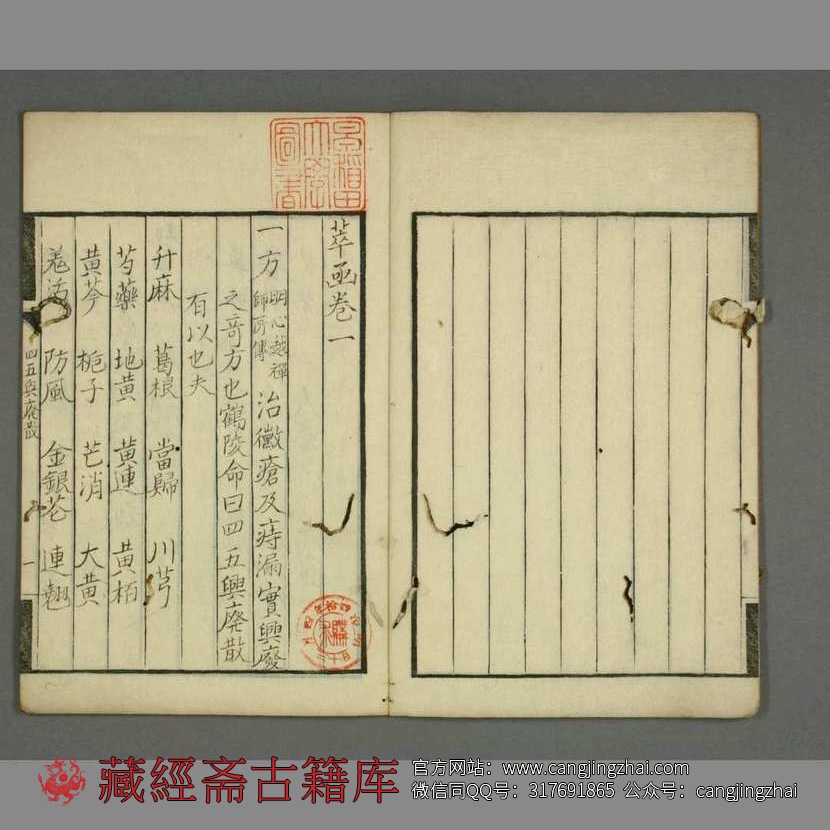 萃亟卷一
一方 明心越禪師所傳 治黴瘡及痔漏實興廢
之奇方也鶴陵命曰四五興廃散
有以也夫
升麻 葛根 當歸 川芎
芍藥 地黄 黄連 黄栢
黄芩 栀子 芒消 大黄
羗活 防風 金銀花 連翹
四五興廃散
一
早稲田大學圖書
藏經斋古籍库
官方网站：www.cangjingzhai.com
微信同QQ号：317691865 公众号：cangjingzhai